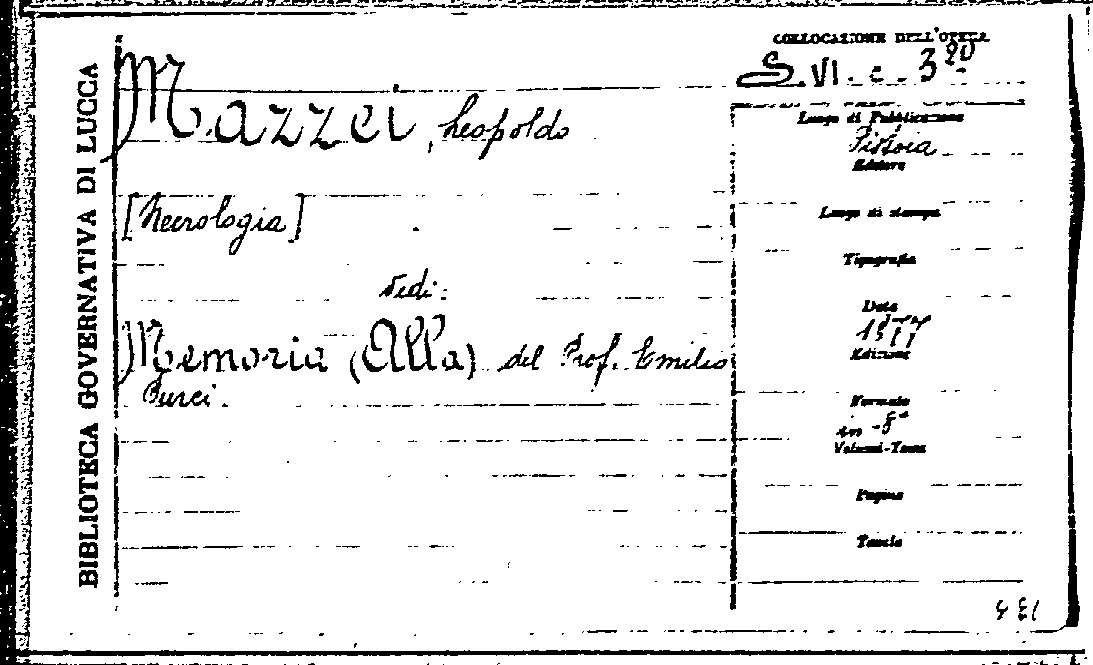 BIBLIOTECA GOVERNATIVA DI LUCCA
COLLOCAZIONE DELL'OPERA
S. VI. c. 320
Mazzei, Leopoldo
[Necrologia]
Vedi:
Memoria (Alla) del Prof. Emilio
Burci.
Luogo di Pubblicazione
Pistoia
Editore
Luogo di stampa
Tipografia
Data
1877
Edizione
Formato
in-8°
Volumi-Tomi
Pagine
Tavole